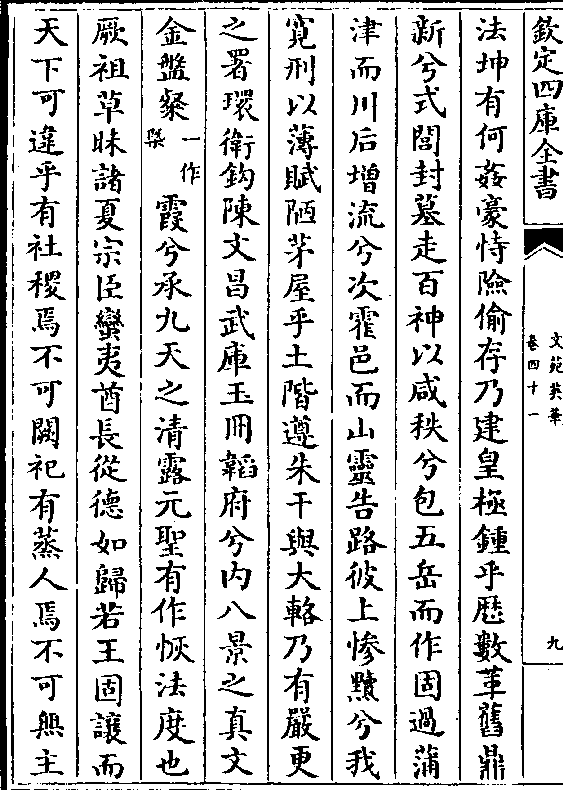 欽定四庫全書
文苑英華
卷四十一
九
法坤有何姦豪恃險偷存乃建皇極鍾乎厯數革舊鼎
新兮式閭封墓走百神以咸秩兮包五岳而作固過蒲
津而川后增流兮次霍邑而山靈告路彼上慘黷兮我
寛刑以薄賦陋茅屋乎土階遵朱干與大輅乃有嚴更
之署環衛鈎陳文昌武庫玉冊韜府兮内八景之真文
金盤粲一作槃霞兮承九天之清露元聖有作恢法度也
厥祖草昧諸夏宗臣蠻夷酋長從德如歸若王固讓而
天下可違乎有社稷焉不可闕祀有蒸人焉不可無主